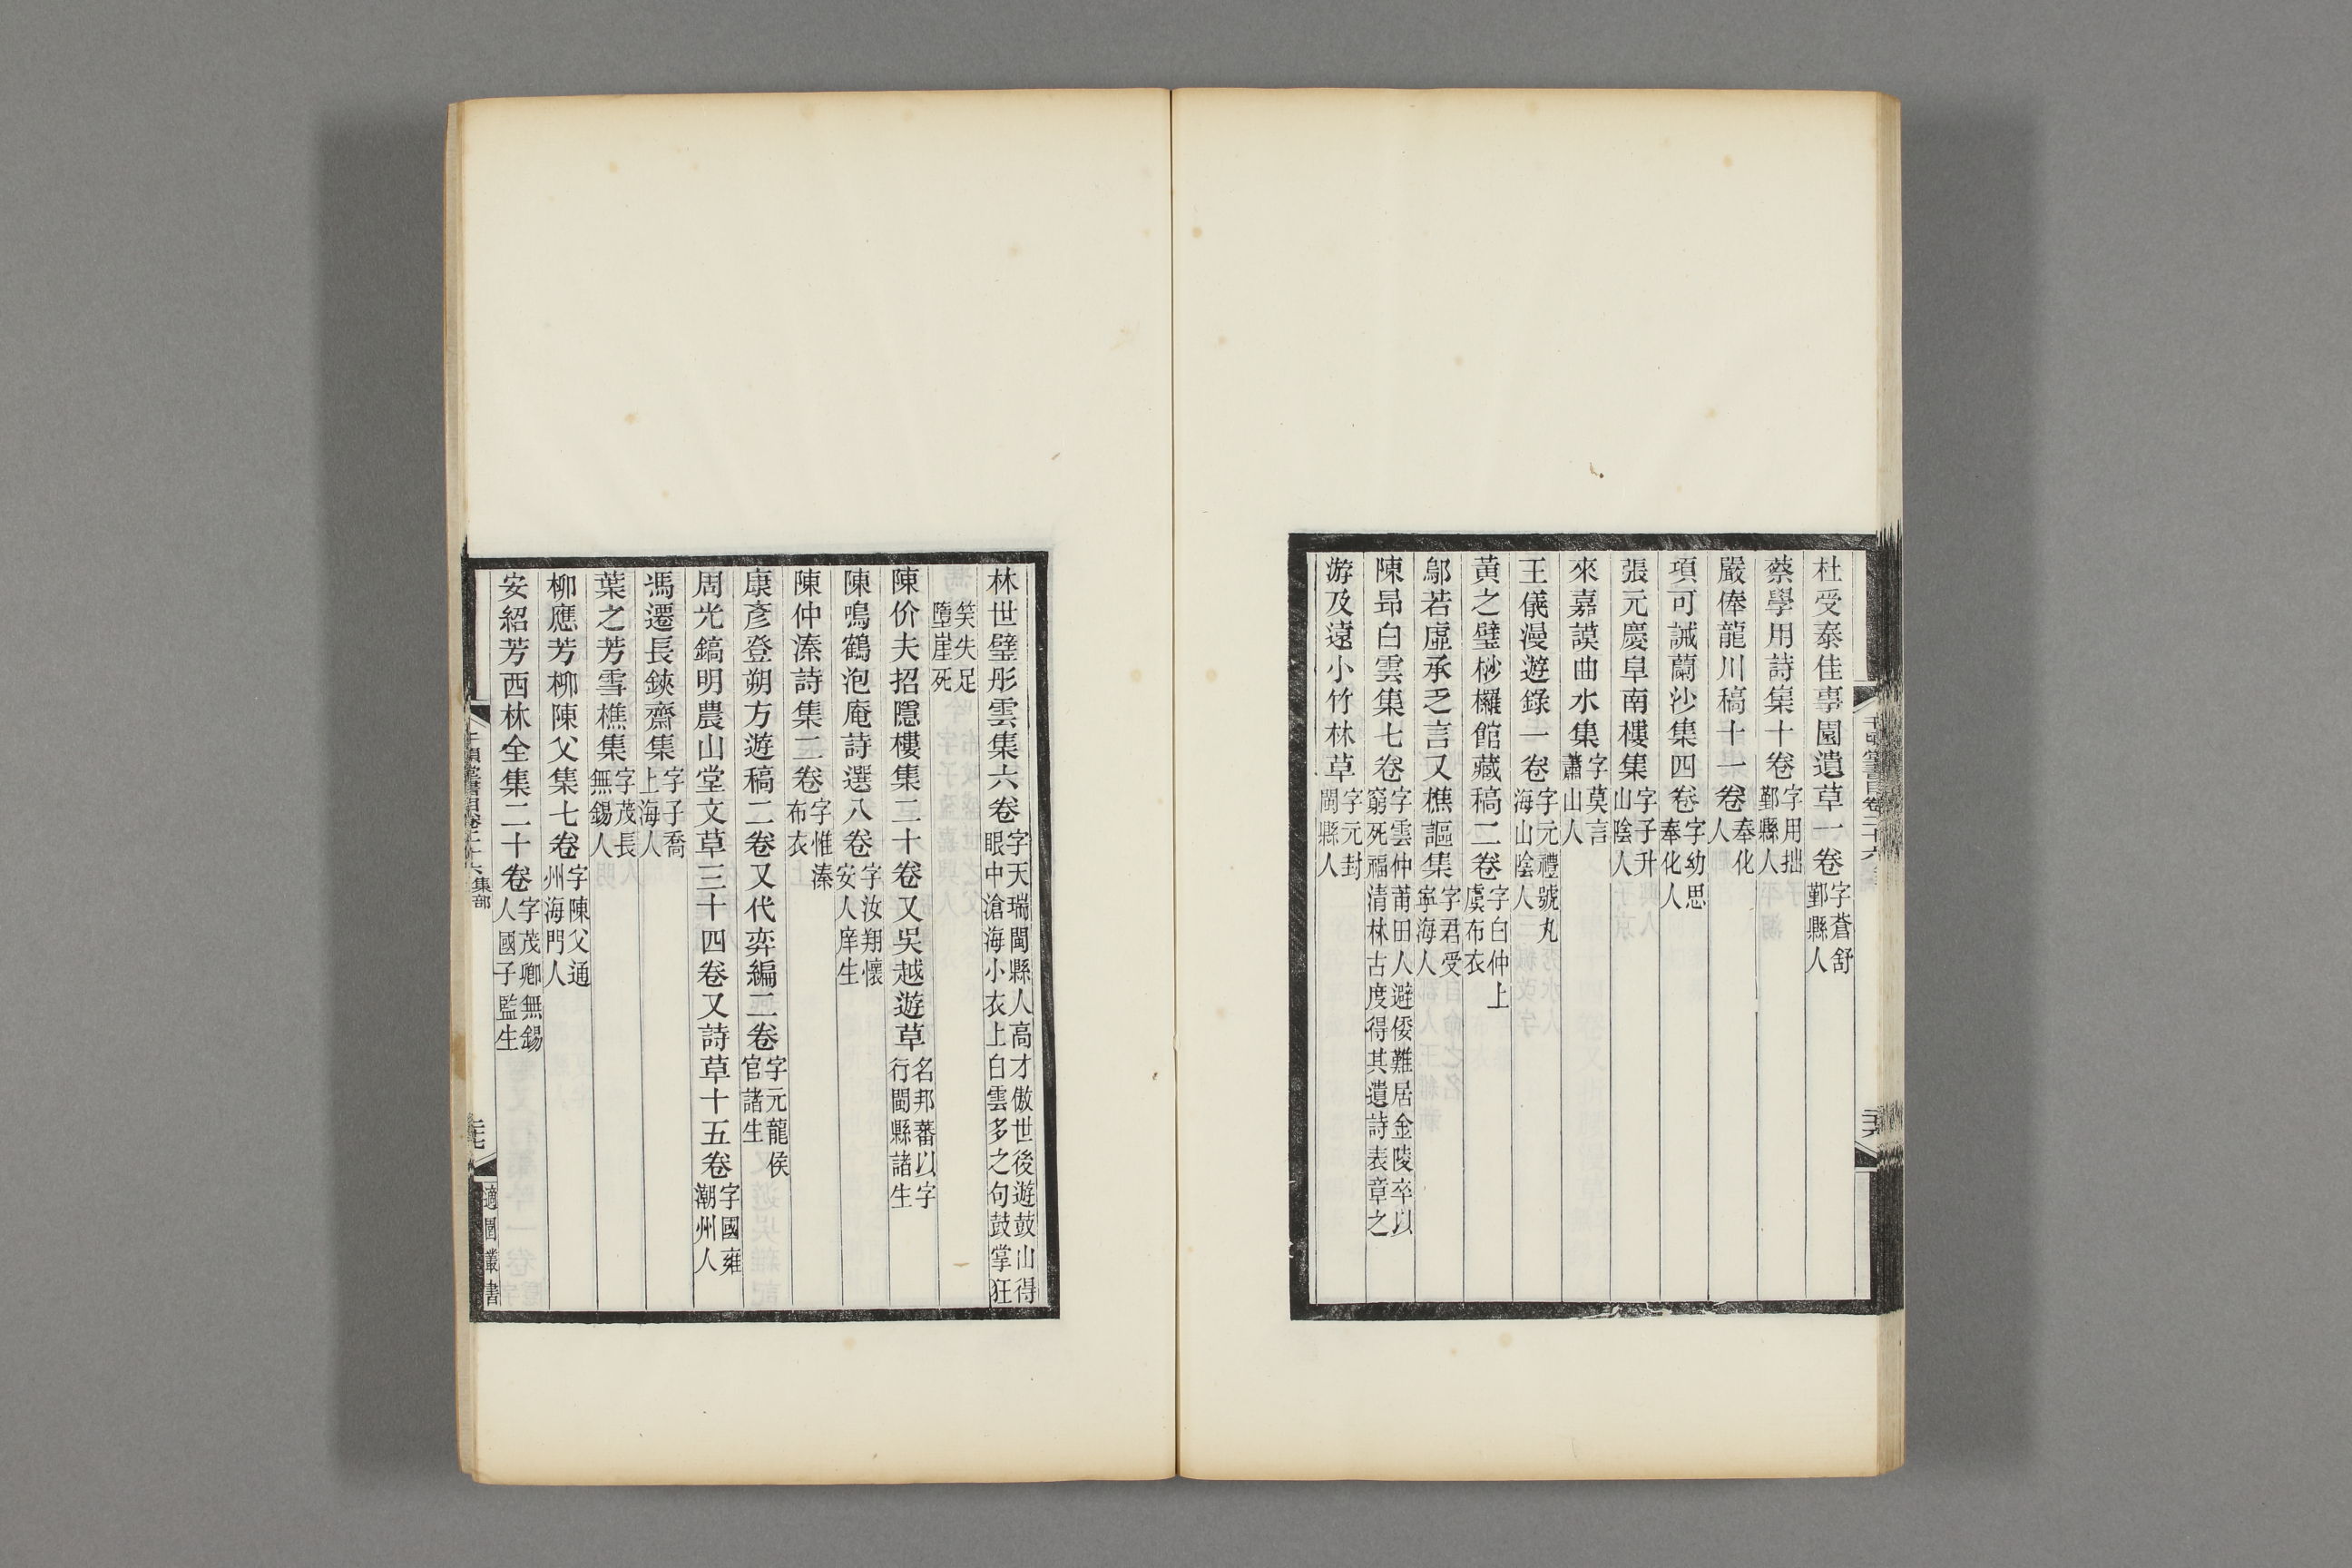 杜受泰佳事園遺草一卷字蒼舒鄞縣人
蔡學用詩集十卷字用拙鄞縣人
嚴俸龍川稿十一卷奉化人
項可誠蘭沙集四卷字幼思奉化人
張元慶阜南樓集字子升山陰人
來嘉謨曲水集字莫言蕭山人
王儀漫遊錄一卷字元禮號丸海山陰人
黃之璧杪欏館藏稿二卷字白仲上虞布衣
鄔若虛承乏言又樵謳集字君受寧海人
陳昻白雲集七卷字雲仲莆田人避倭難居金陵卒以窮死福清林古度得其遺詩表章之
游及遠小竹林草字元封閩縣人
林世璧彤雲集六卷字天瑞閩縣人高才傲世後遊鼓山得眼中滄海小衣上白雲多之句鼓掌狂
笑失足墮崖死
陳价夫招隱樓集二十卷又吳越遊草名邦蕃以字行閩縣諸生
陳鳴鶴泡庵詩選八卷字汝翔懷安人庠生
陳仲溱詩集二卷字惟溱布衣
康彥登朔方遊稿二卷又代弈編二卷字元龍侯官諸生
周光鎬明農山堂文草三十四卷又詩草十五卷字國雍潮州人
馮遷長鋏齋集字子喬上海人
葉之芳雪樵集字茂長無錫人
柳應芳柳陳父集七卷字陳父通州海門人
安紹芳西林全集二十卷字茂卿無錫人國子監生
千頃堂書目卷二十六 集部
適園叢書